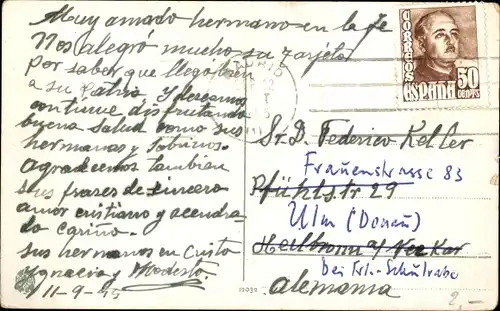 Muy amado hermano en la fe
Nos alegró mucho su tarjeta
por saber que llegó bien
a su patria y deseamos
continue disfrutando
buena salud como sus
hermanas y sobrinos.
agradecemos tambien
sus frases de sincero
amor cristiano y acendra
do cariño.
sus hermanos en Cristo
Ygnacia y Modesto
11-9-
CORREOS
ESPAÑA
50
CENTS
Sr. D. Federico Keller
Frauenstrasse 83
Pfühlstr 29
Ulm (Donau)
Heilbronn a/ Neckar
bei Frl.
Alemania
2,-